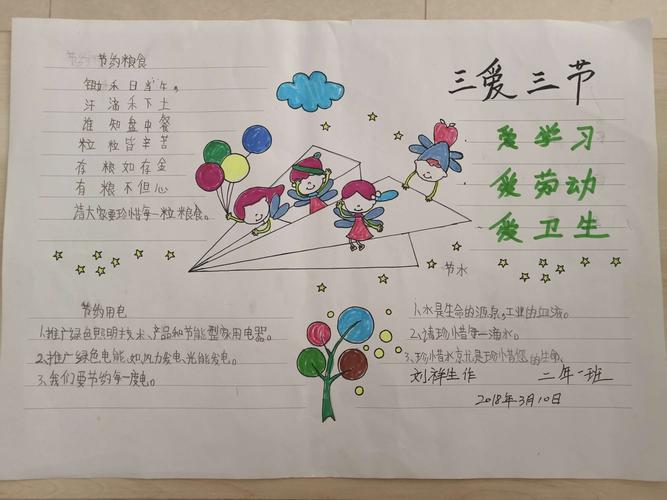 节约粮食
锄禾日当午。
汗滴禾下土
谁知盘中餐
粒粒皆辛苦
存粮如存金
有粮不但心
请大家要珍惜每一粒粮食。
三爱三节
爱学习
爱劳动
爱卫生
节约用电
1.推广绿色照明技术、产品和节能型家用电器。
2.推广绿色电能,如风力发电、光能发电。
3.我们要节约每一度电。
节水
1.水是生命的源泉,工业的血液。
2.请珍惜每一滴水。
3.珍惜水京尤是珍惜您的生命。
刘祥生作 二年一班
2018年3月10日